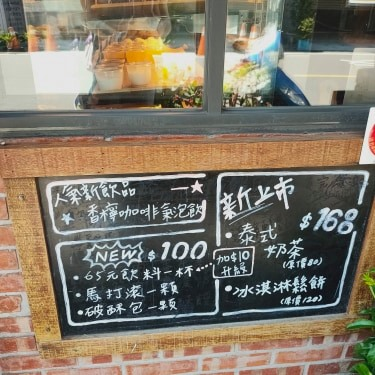 人氣新飲品
香檸咖啡氣泡飲
NEW $100
・65元飲料一杯...
・馬打滾一顆
・破酥包一顆
加$10
升級
新上市
$168
・泰式
奶茶
(原價80)
・冰淇淋鬆餅
(原價120)